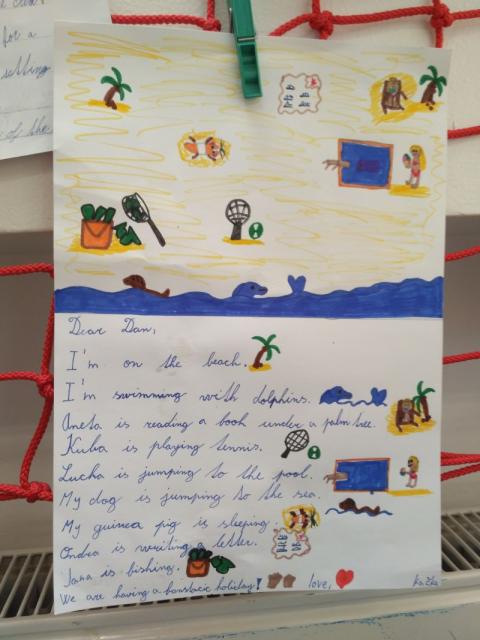 for a
of the
Dear Dan,
I'm on the beach.
I'm swimming with dolphins.
Aneta is reading a book under a palm tree.
Kuba is playing tennis.
Lucka is jumping to the pool.
My dog is jumping to the sea.
My guinea pig is sleeping.
Ondra is writing a letter.
Jana is bishing.
We are having a banstastic holiday!
love,